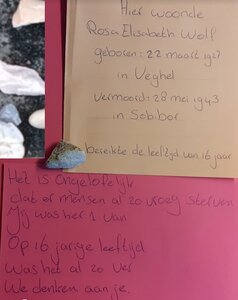 Hier woonde
Rosa Elisabeth Wolf
geboren: 22 maart 1927
in Veghel
vermoord: 28 mei 1943
in Sobibor
bereikte de leeftijd van 16 jaar
Het is ongelofelijk
dat er mensen al zo vroeg sterven
Jij was her 1 van
Op 16 jarige leeftijd
Was het al zo ver
We denken aan je.